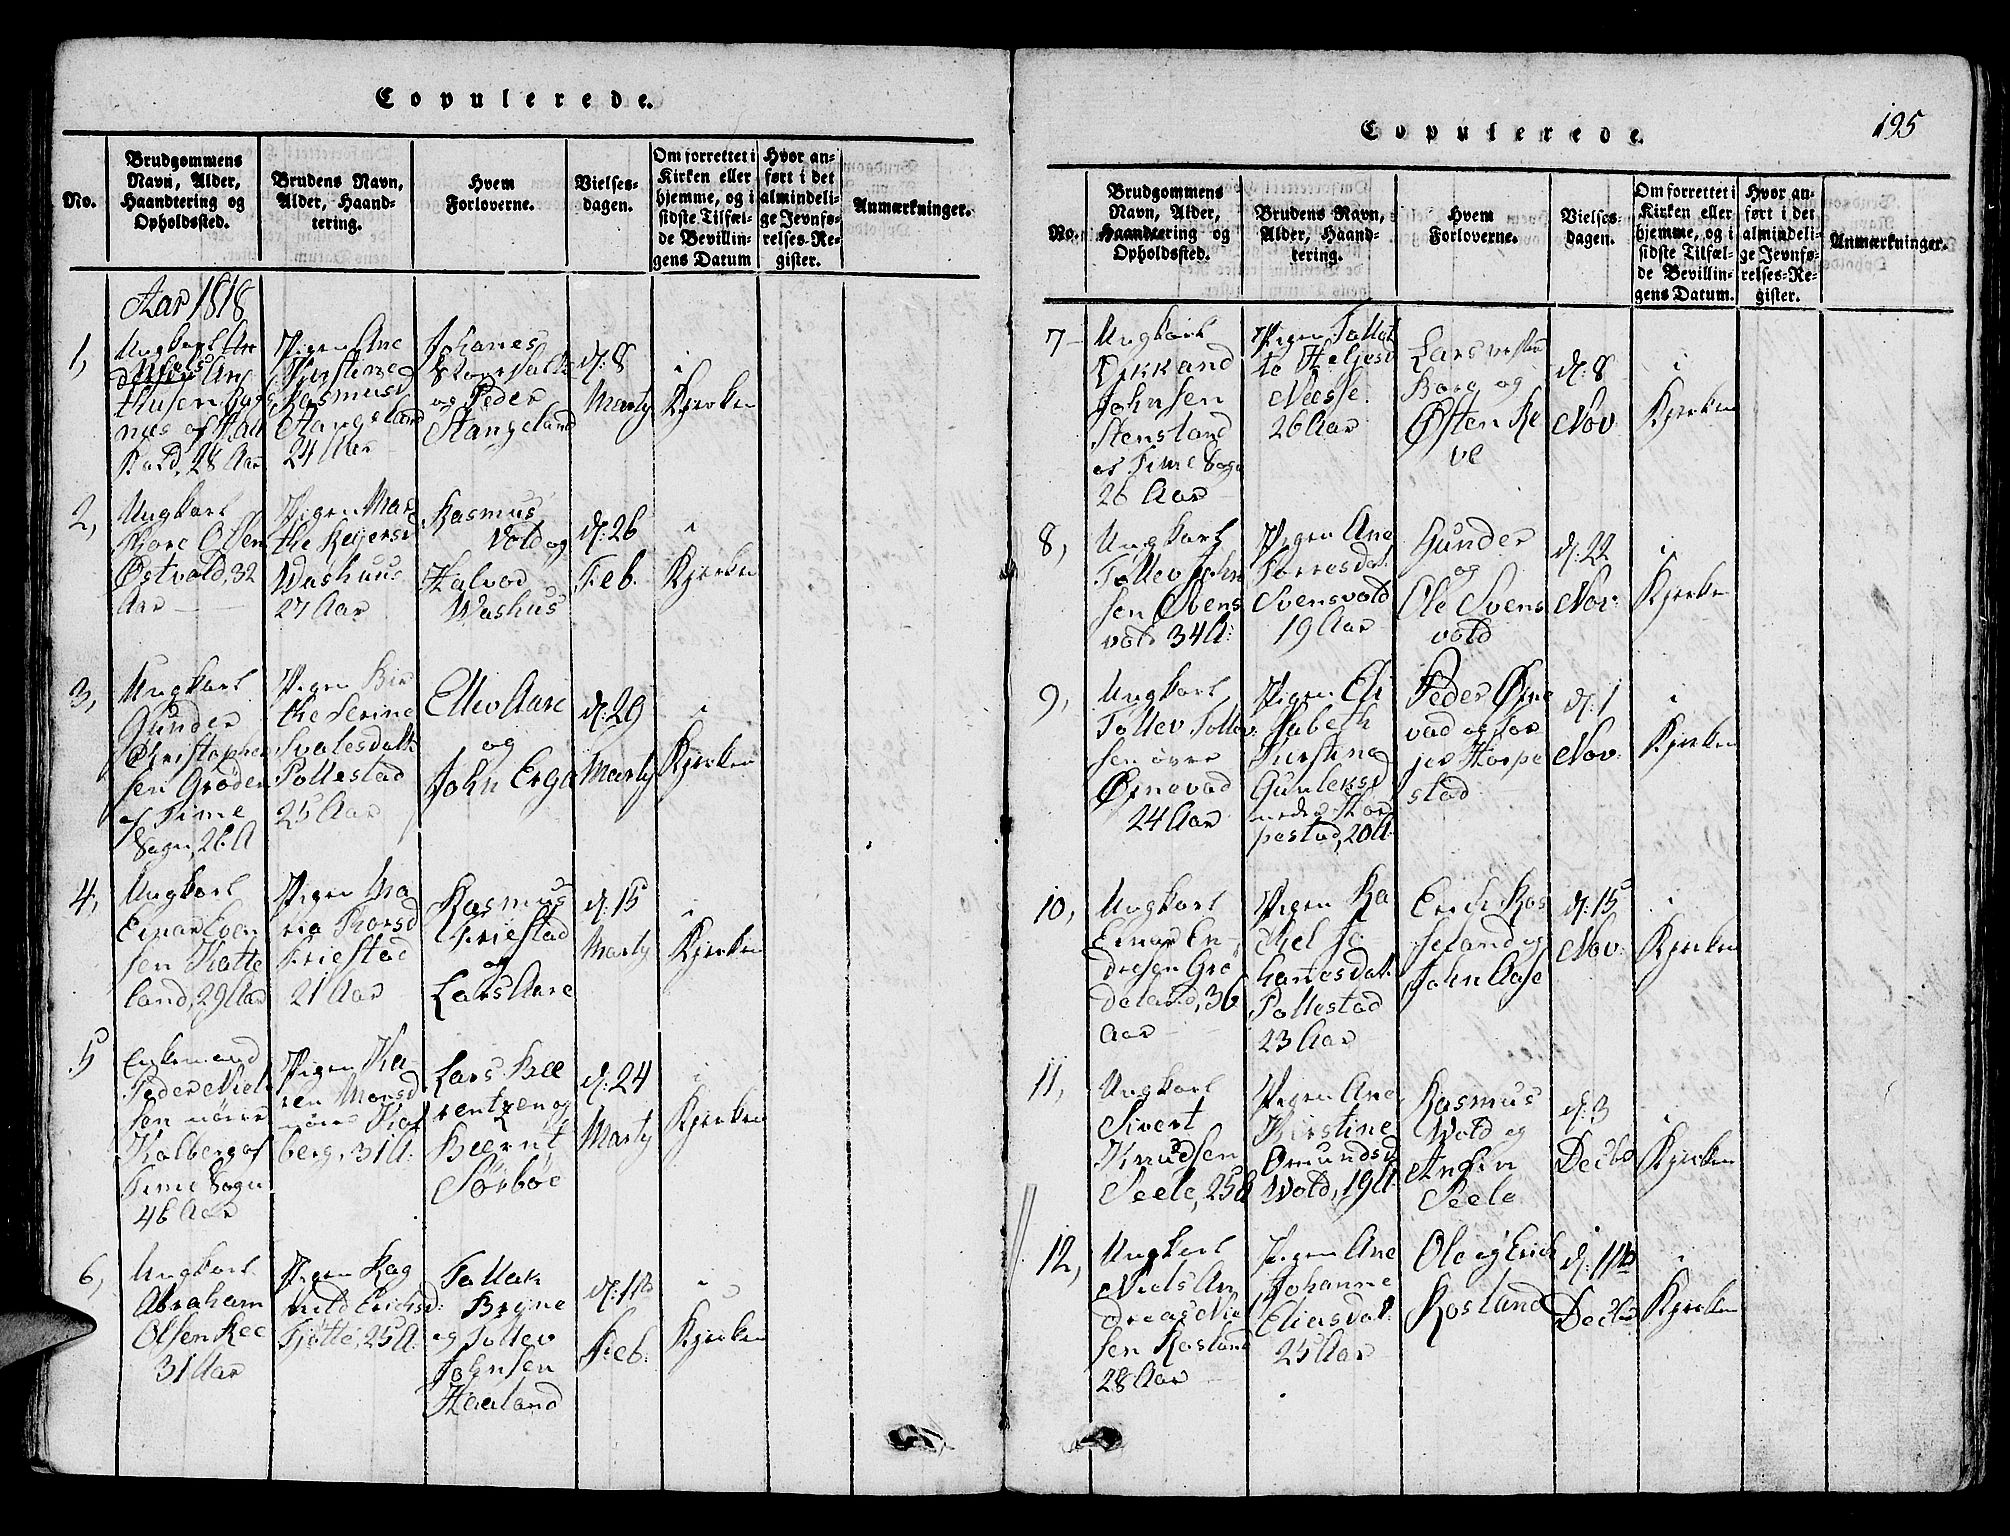 Copulerede.
No.
Brudgommens Navn, Alder, Haandtering og Opholdssted.
Brudens Navn, Alder, Haandtering.
Hvem Forloverne.
Vielsesdagen.
Om forrettet i Kirken eller hjemme, og i sidste Tilfælde Bevillingens Datum
Hvor anført i det almindelige Jevnførelses-Register.
Anmærkninger.
Aar 1818
1,
Ungkarl
nus af
28 Aar
Pigen Ane
Kirstine
Rasmusd
Stangeland
24 Aar
Johanes
og Peder
Stangeland
d: 8
Marty
i
Kjerken
2,
Ungkarl
Tore Olsen
Østvold, 32
Aar
Pigen Mar
the Reiersd
Washuus
27 Aar
Rasmus
Vold og
Halvor
Washus
d: 26
Feb.
i
Kjerken
3,
Ungkarl
Gunder
Christophen
sen Gröden
af Time
Sogn, 26 A
Pigen Bir
the Serine
Svalesdatt
Pollestad
25 Aar
Ellev Aare
og
John Erga
d: 29
Marty
i
Kjerken
4,
Ungkarl
Einar Even
sen Hatte
land, 29 Aar
Pigen Ma
ria Thorsd
Friestad
21 Aar
Rasmus
Friestad
og
Lars Aare
d: 15
Marty
i
Kjerken
5
Enkemand
Peder Niel
sen nörre
Kalberg af
Time Sogn
46 Aar
Pigen Ka-
ren Monsd
nörre Kal
berg, 31 A:
Lars Bee
rentzen og
Beernt
Sörböe
d: 24
Marty
i
Kjerken
6,
Ungkarl
Abraham
Olsen Ree
31 Aar
Pigen Rag
nild Ericksd:
Tjötte, 25 A:
Tollak
Bryne
og Tollev
Johnsen
Haaland
d: 11te
Feb:
i
Kjerken
Copulerede.
195
No.
Brudgommens Navn, Alder, Haandtering og Opholdssted.
Brudens Navn, Alder, Haandtering.
Hvem Forloverne.
Vielsesdagen.
Om forrettet i Kirken eller hjemme, og i sidste Tilfælde Bevillingens Datum.
Hvor anført i det almindelige Jevnførelses-Register.
Anmærkninger.
7
Ungkarl
Johnsen
Stensland
af Time Sogn
26 Aar
Pigen Tollot
ta Heljesd
Næsse
26 Aar
Lars vestre
Bore og
Østen Re
ve
d: 8
Nov
i
Kjerken
8,
Ungkarl
Tollev John
sen Svens
vold 34 A:
Pigen Ane
Torresdat.
Svensvold
19 Aar
Gunder
og
Ole Svens
vold
d: 22
Nov:
i
Kjerken
9,
Ungkarl
Tollev Tollev
sen övre
Ørnevad
24 Aar
Pigen Eli
sabeth
Kirstine
Gunleksd
nedre Hor
pestad, 20 A:
Peder Ørne
vad og Tor
jer Horpe
stad
d: 1
Nov:
i
Kjerken
10,
Ungkarl
Einar En
dresen Grö
deland, 36
Aar
Pigen Ra
chel Jo
hanesdatt.
Pollestad
23 Aar
Erich Ros
seland og
John Aase
d: 15
Nov:
i
Kjerken
11,
Ungkarl
Sivert
Knudsen
Seele, 25 A
Pigen Ane
Kirstine
Omundsd
Wold, 19 A
Rasmus
Wold og
Seele
d: 3
Decbr
i
Kjerken
12,
Ungkarl
Niels An
dreas Niel
sen Rosland
28 Aar
Pigen Ane
Johanne
Eliasdat.
25 Aar
Ole og Erich
Rosland
d: 11te
Decbr
i
Kjerken